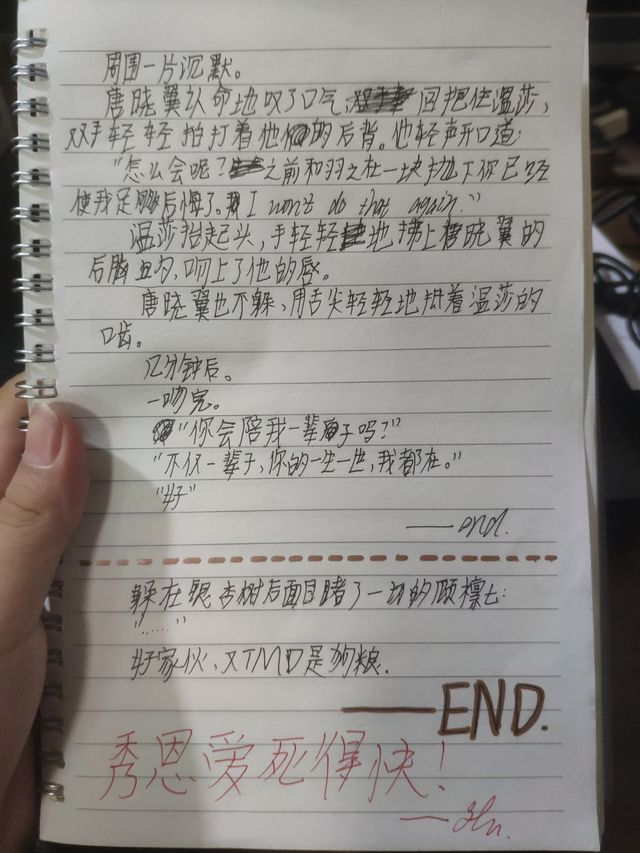 周围一片沉默。
唐晓翼认命地叹了口气，回抱住温莎，
双手轻轻拍打着他的后背。他轻声开口道：
“怎么会呢？之前和羽之在一块抛下你已经
使我足够后悔了。I won't do that again.”
温莎抬起头，手轻轻地拂上唐晓翼的
后脑勺，吻上了他的唇。
唐晓翼也不躲，用舌尖轻轻地抵着温莎的
口齿。
几分钟后。
一吻完。
“你会陪我一辈子吗？”
“不仅一辈子，你的一生一世，我都在。”
“好”
——end.
躲在银杏树后面目睹了一切的顾檩七：
“……”
好家伙，又TMD是狗粮.
——END.
秀恩爱死得快！